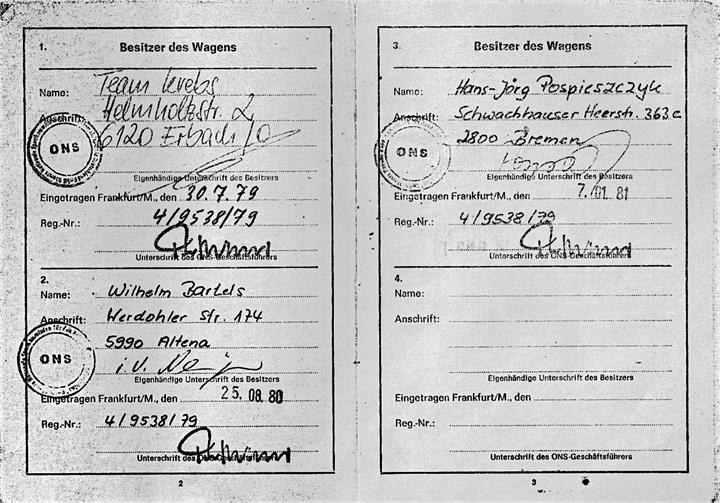 1.
Besitzer des Wagens
Name: Team Krebs
Anschrift: Helmholtzstr. 2
6120 Erbach/O
ONS
Eigenhändige Unterschrift des Besitzers
Eingetragen Frankfurt/M., den 30.7.79
Reg.-Nr.: 4/9538/79
Unterschrift des ONS-Geschäftsführers
2.
Name: Wilhelm Bartels
Anschrift: Werdohler Str. 174
5990 Altena
ONS
i.V.
Eigenhändige Unterschrift des Besitzers
Eingetragen Frankfurt/M., den 25.08.80
Reg.-Nr.: 4/9538/79
Unterschrift des ONS-Geschäftsführers
2
3.
Besitzer des Wagens
Name: Hans-Jörg Pospieszczyk
Anschrift: Schwachhauser Heerstr. 363c
2800 Bremen
ONS
Eigenhändige Unterschrift des Besitzers
Eingetragen Frankfurt/M., den 7./01.81
Reg.-Nr.: 4/9538/79
Unterschrift des ONS-Geschäftsführers
4.
Name:
Anschrift:
Eigenhändige Unterschrift des Besitzers
Eingetragen Frankfurt/M., den
Reg.-Nr.:
Unterschrift des ONS-Geschäftsführers
3